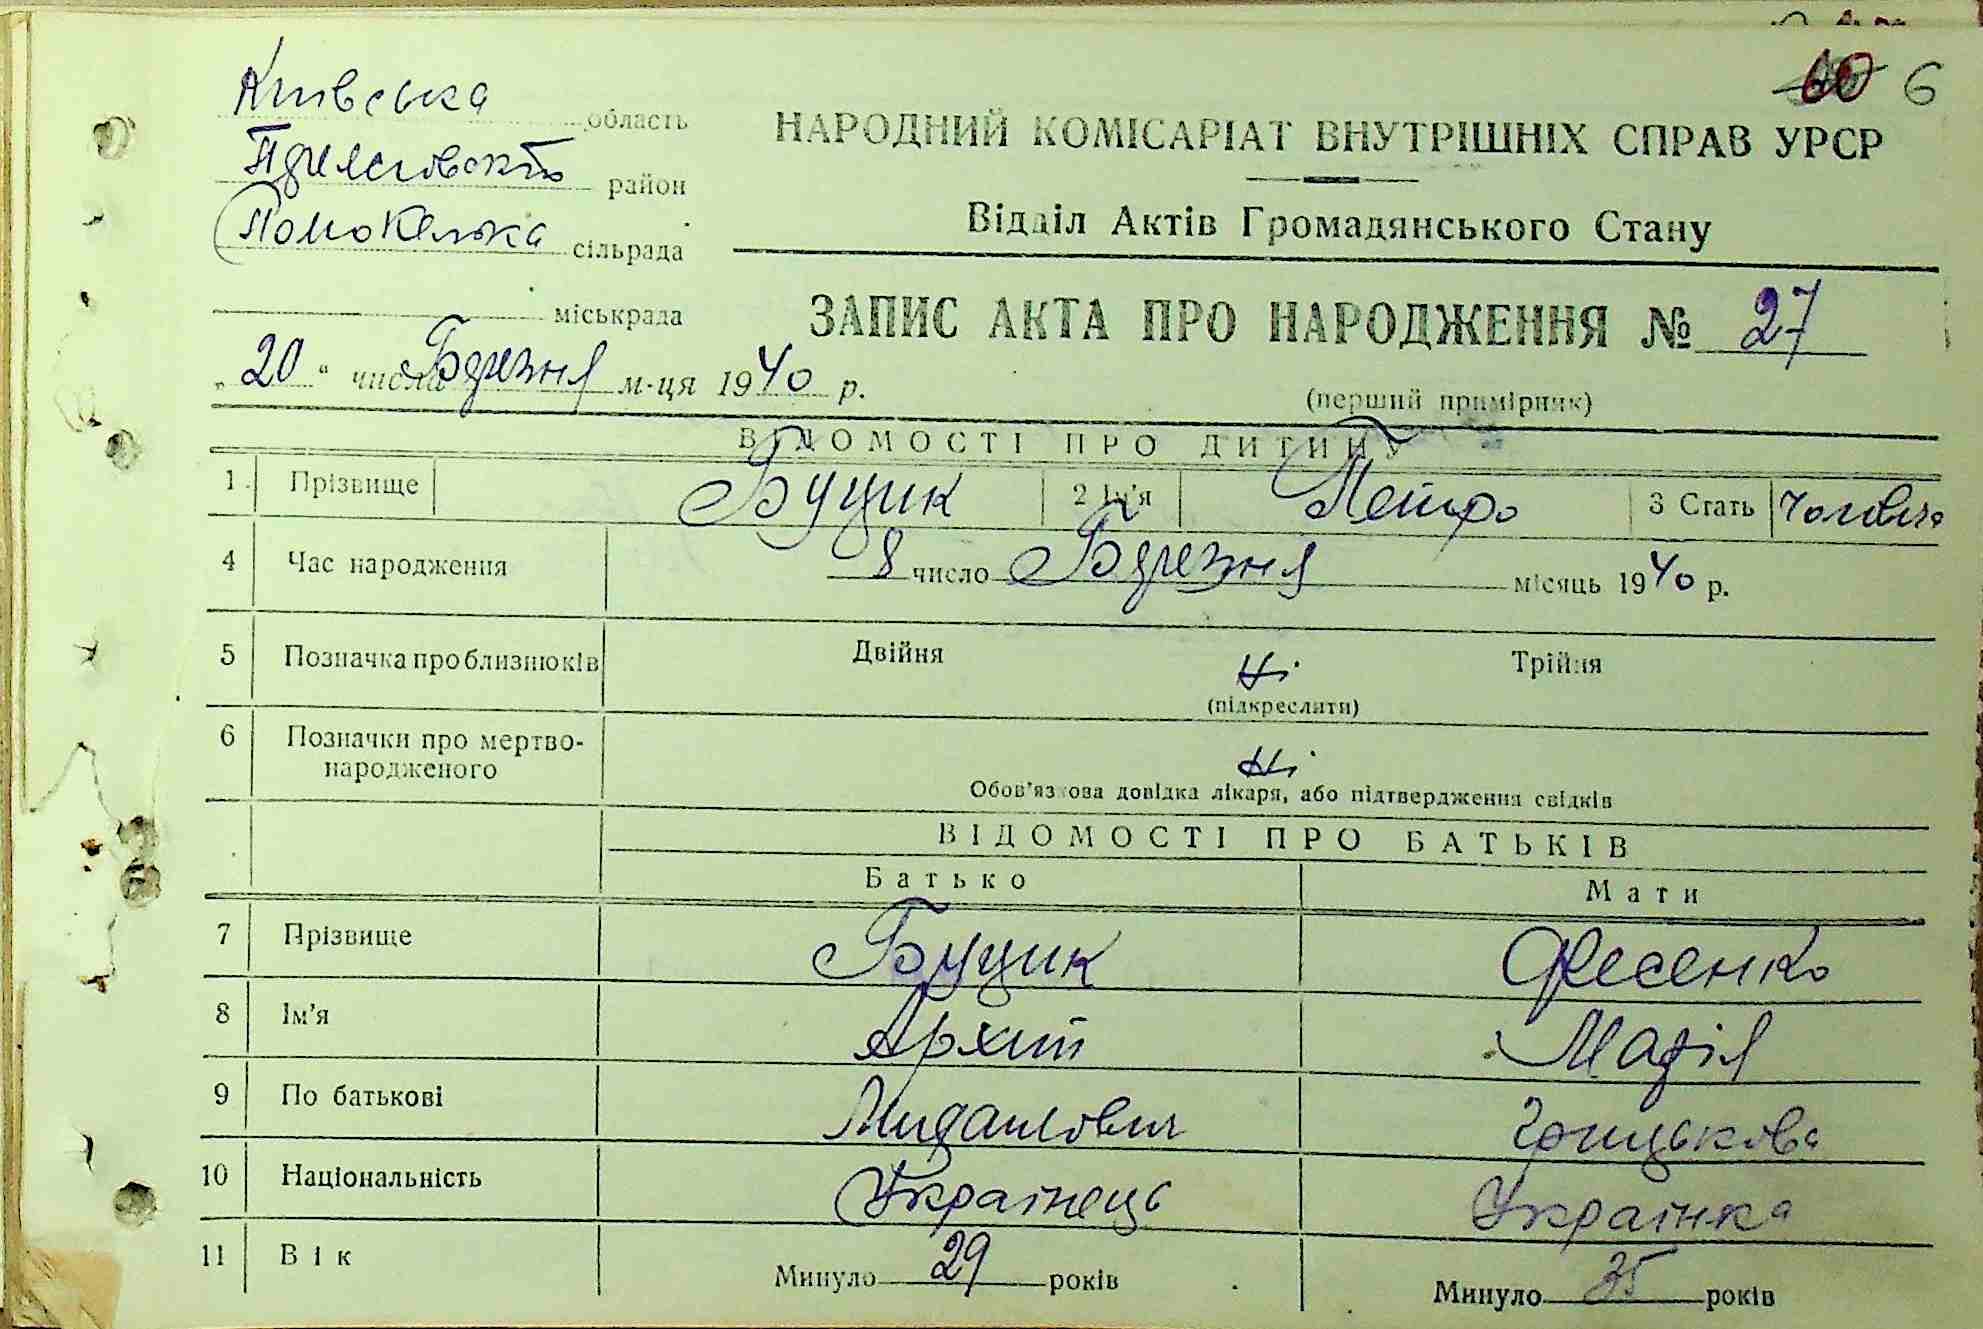 60 6
Київська область
район
сільрада
НАРОДНИЙ КОМІСАРІАТ ВНУТРІШНІХ СПРАВ УРСР
Відділ Актів Громадянського Стану
міськрада
ЗАПИС АКТА ПРО НАРОДЖЕННЯ № 27
„20“ числа Березня м-ця 1940 р.
(перший примірник)
ВІДОМОСТІ ПРО ДИТИНУ
1 Прізвище Буцик 2 Ім'я Петро 3 Стать
4 Час народження 8 число Березня місяць 1940 р.
5 Позначка про близнюків Двійня Ні Трійня
(підкреслити)
6 Позначки про мертво-
народженого Ні
Обов'язкова довідка лікаря, або підтвердження свідків
ВІДОМОСТІ ПРО БАТЬКІВ
Батько Мати
7 Прізвище Буцик Фесенко
8 Ім'я Архип Марія
9 По батькові Грицькова
10 Національність Українець Українка
11 Вік Минуло 29 років Минуло 35 років